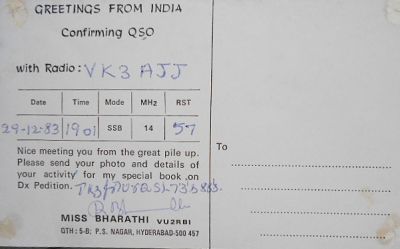 GREETINGS FROM INDIA
Confirming QSO
with Radio: VK3 AJJ
Date Time Mode MHz RST
29-12-83 1901 SSB 14 57
Nice meeting you from the great pile up.
Please send your photo and details of
your activity for my special book ,on
Dx Pedition.
MISS BHARATHI VU2RBI
QTH : 5-B; P. S. NAGAR, HYDERABAD-500 457
To